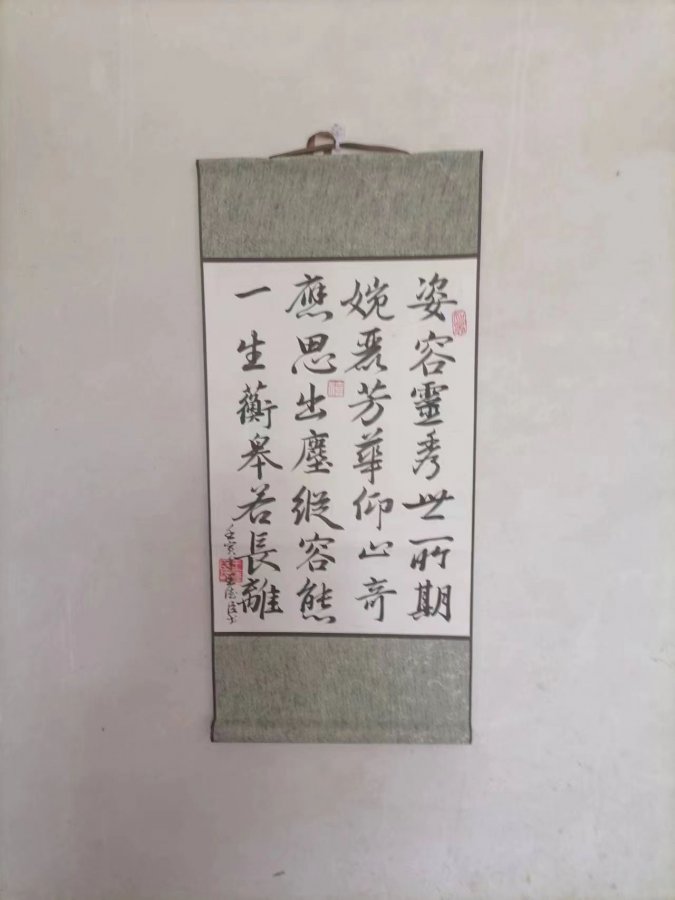 姿容靈秀世所期
婉麗芳華仰止奇
應思出塵縱容態
一生蘅皋若長離
壬寅